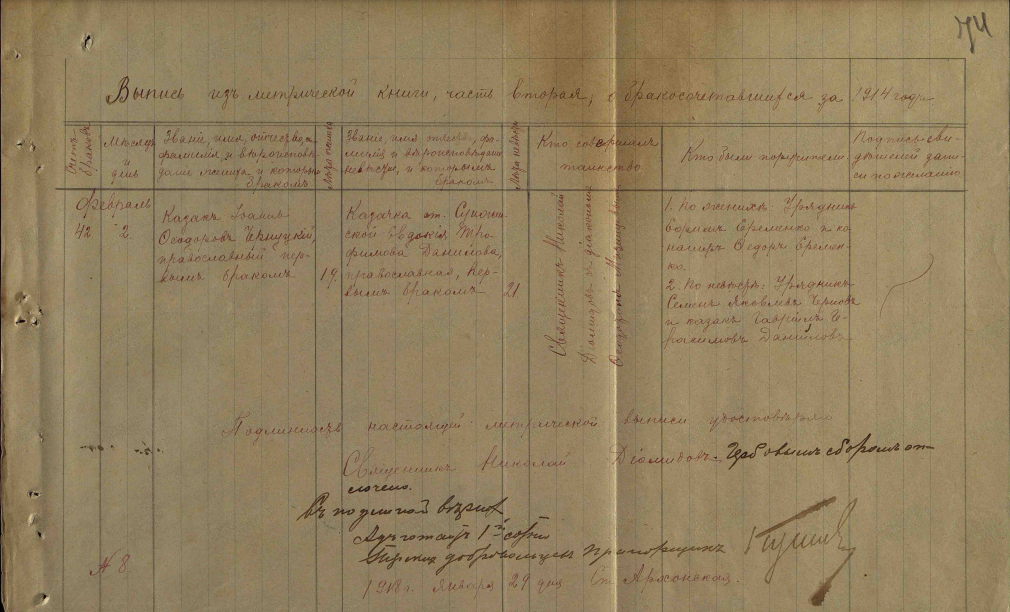 74
Выпись изъ метрической книги, часть вторая, о бракосочетавшихся за 1914 годъ
Счетъ браковъ
Мѣсяцъ
и
день
Званіе, имя, отчество,
фамилія, и вѣроисповѣ-
даніе жениха, и которымъ
бракомъ
Лѣта жениха
Званіе, имя, отчество, фа-
милія и вѣроисповѣданіе
невѣсты, и которымъ
бракомъ
Лѣта невѣсты
Кто совершалъ
таинство
Кто были поручители
Подпись сви-
дѣтелей запи-
си по желанію
Февраль
42
2
Казакъ Іоаннъ
Ѳеодоровъ
православный пер-
вымъ бракомъ
19
Казачка ст.
ской Евдокія Тро-
фимова Данилова,
православная, пер-
вымъ бракомъ
21
Священникъ Николай
Діомидовъ съ діакономъ
1. По женихѣ: Урядникъ
Еременко и ка-
Ѳедоръ Еремен-
ко.
2. По невѣстѣ: Урядникъ
Семенъ Яковлевъ
и казакъ Гавріилъ Ге-
расимовъ Даниловъ
Подлинность настоящей метрической выписи удостовѣряю
Священникъ Николай Діомидовъ. Гербовымъ сборомъ оп-
лочено.
Съ подлиной вѣрно
Адъютантъ 1й сотни
добровольцевъ Прапорщикъ
1918 г. Января 29 дня Ст. Архонская.
№ 8